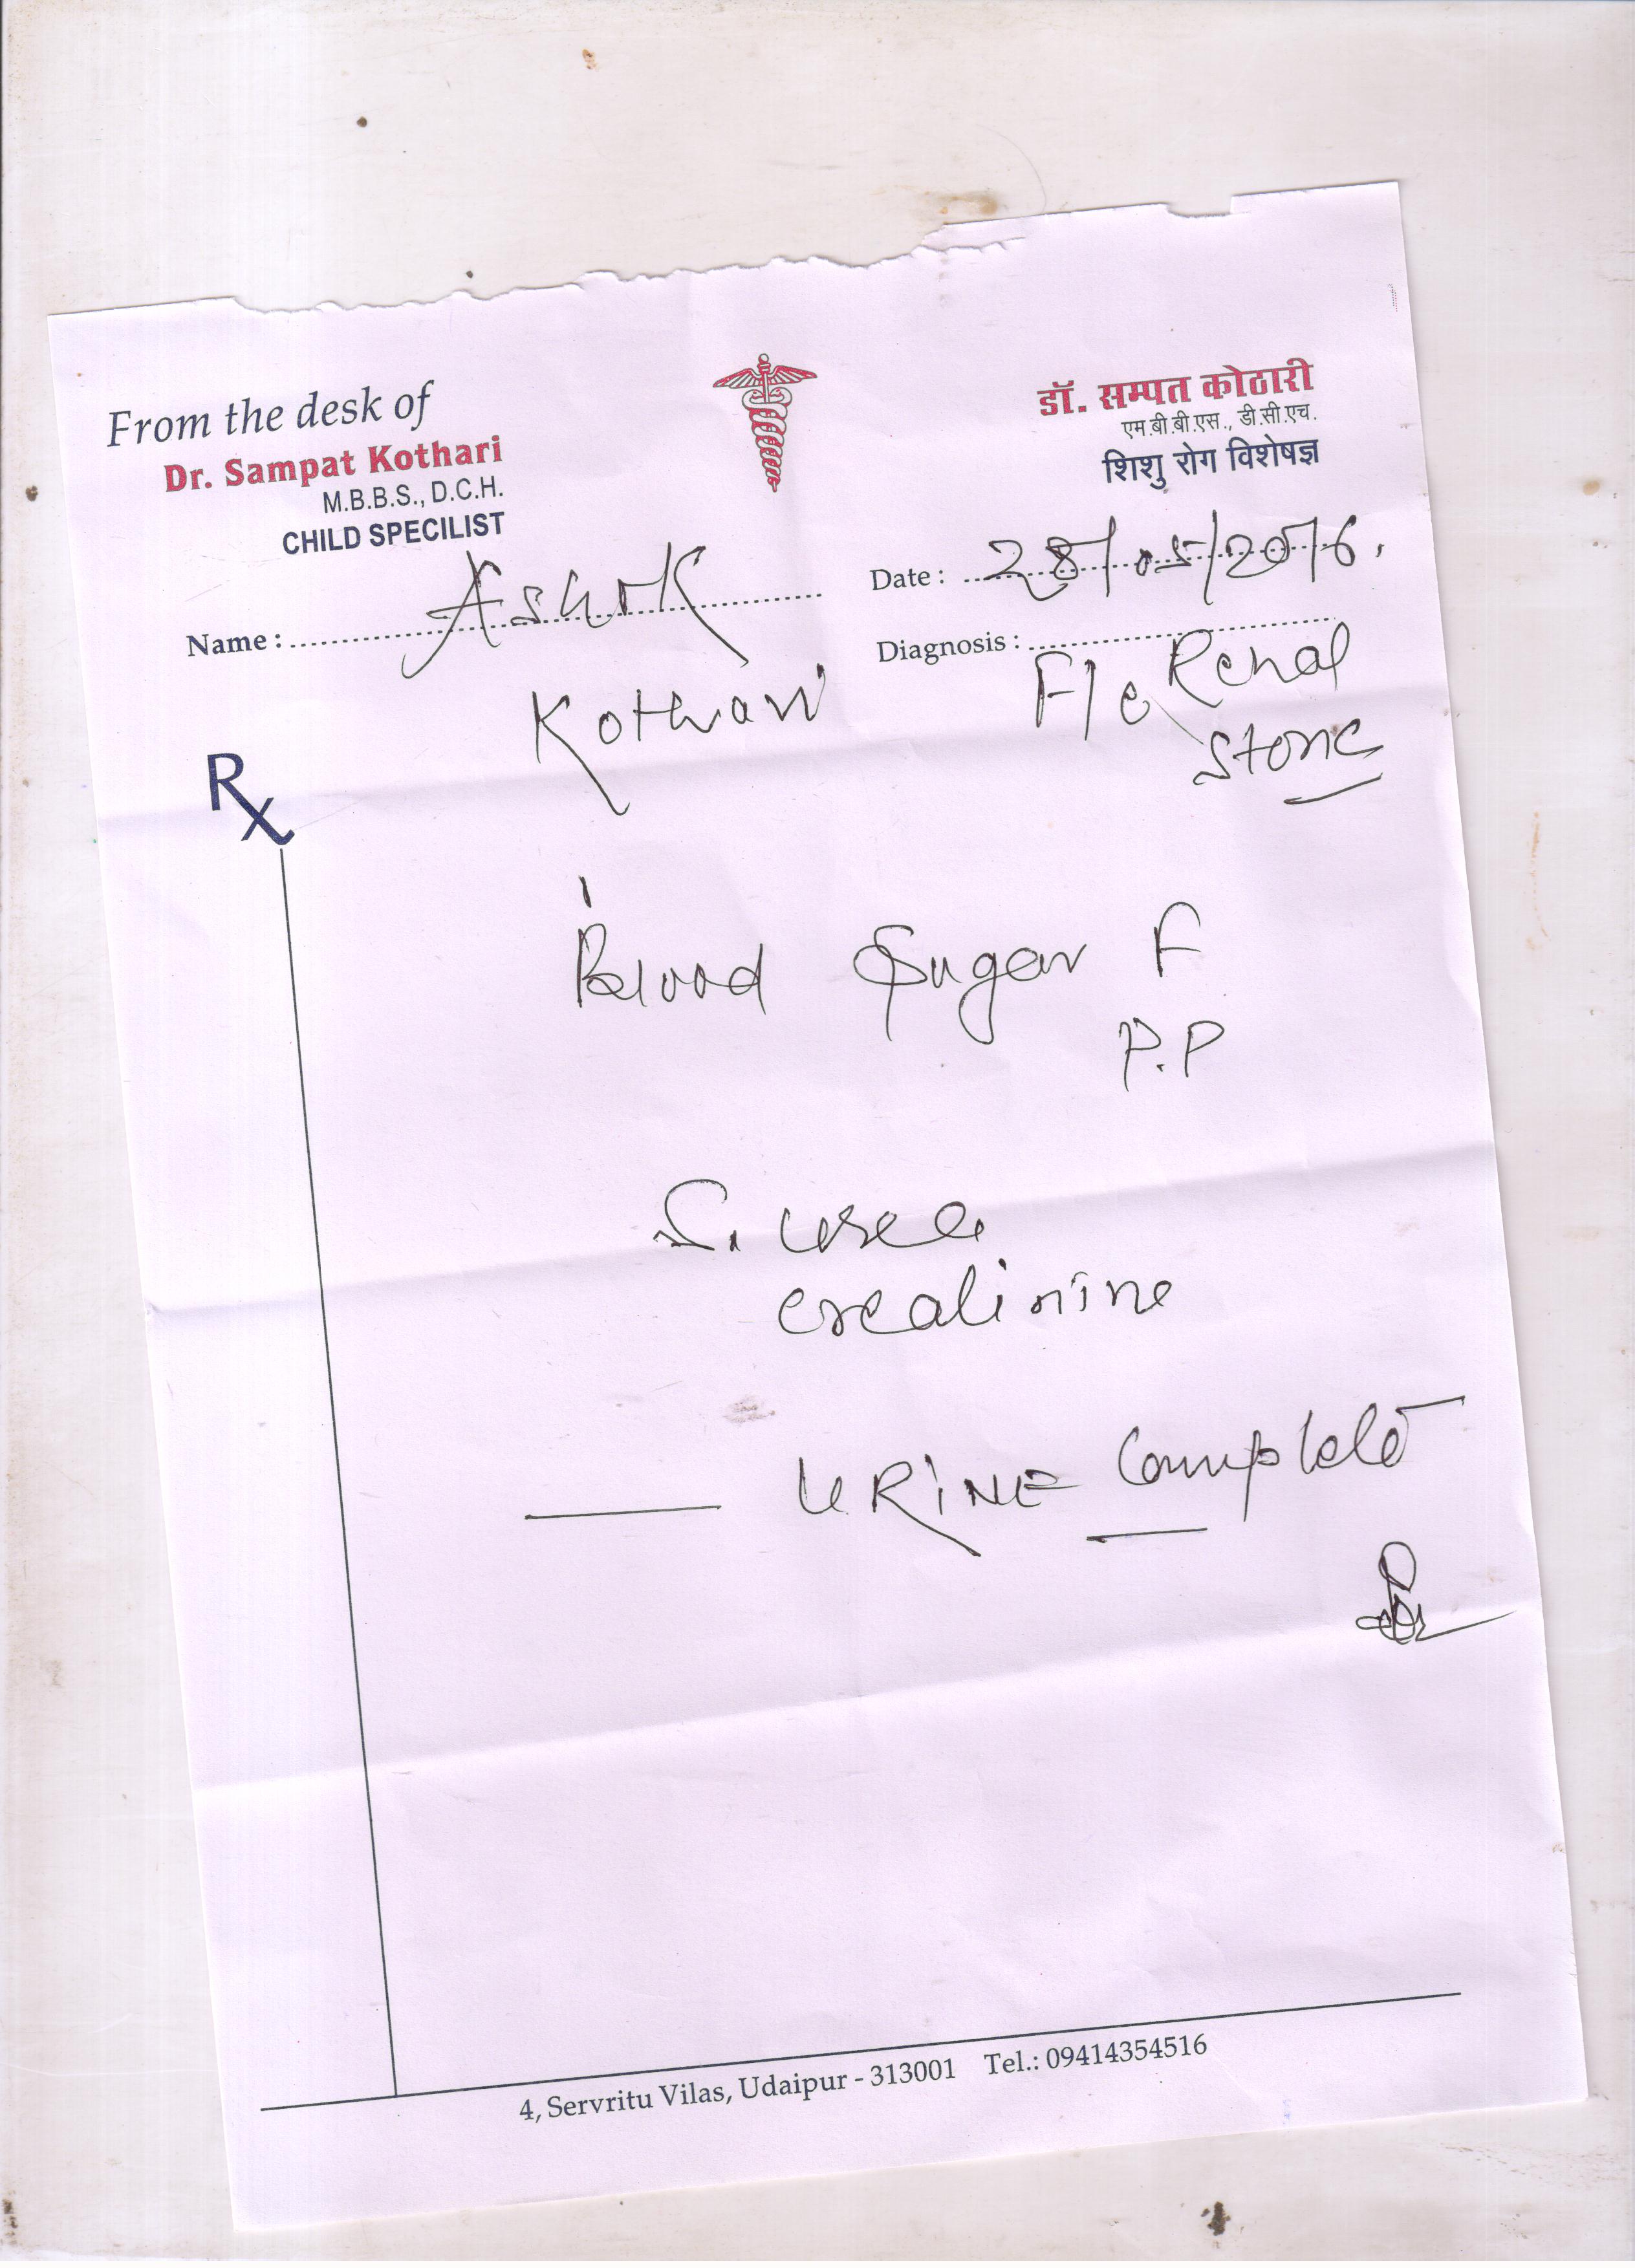 From the desk of
Dr. Sampat Kothari
M.B.B.S., D.C.H.
CHILD SPECILIST
डॉ. सम्पत कोठारी
एम.बी.बी.एस., डी.सी.एच.
शिशु रोग विशेषज्ञ
Name : Ashok
Kothari
Date : 28/05/2016.
Diagnosis :
F/c Renal
stone
Rx
Blood Sugar F
P.P
S. urea
creatinine
URINE Complete
4, Servritu Vilas, Udaipur - 313001 Tel.: 09414354516